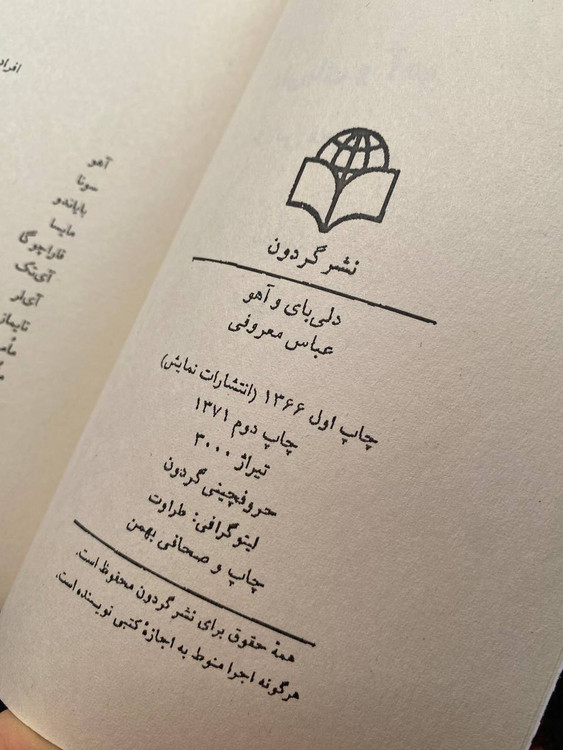 نشر گردون
دلی‌بای و آهو
عباس معروفی
چاپ اول ۱۳۶۶ (انتشارات نمایش)
چاپ دوم ۱۳۷۱
تیراژ ۳۰۰۰
حروفچینی گردون
لیتوگرافی: طراوت
چاپ و صحافی بهمن
همهٔ حقوق برای نشر گردون محفوظ است.
هرگونه اجرا منوط به اجازهٔ کتبی نویسنده است.
افراد
آهو
سونا
بایاندو
مایسا
قاراچوگا
آی‌تک
آی‌لر